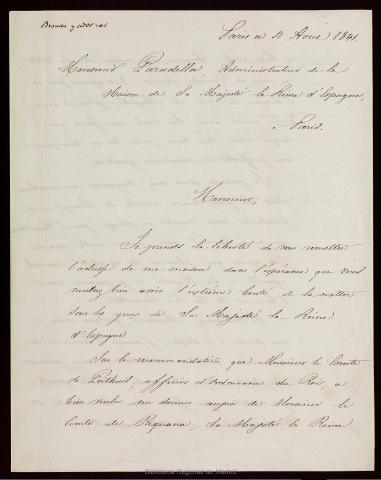 Paris ce 4 Avril 1841.
Monsieur Paradella Administrateur de la
Maison de Sa Majesté la Reine d'Espagne,
à Paris.
Monsieur,
Je prends la liberté de vous remettre
l'adresse de ma maison dans l'espérance que vous
voudrez bien avoir l'extrême bonté de la mettre
sous les yeux de Sa Majesté la Reine
d'Espagne
Sur la recommandation que Monsieur le Comte
de officier d'Ordonnance du Roi, a
bien voulu me donner auprès de Monsieur le
Comte de Requena, Sa Majesté la Reine
Biblioteca Regional de Madrid